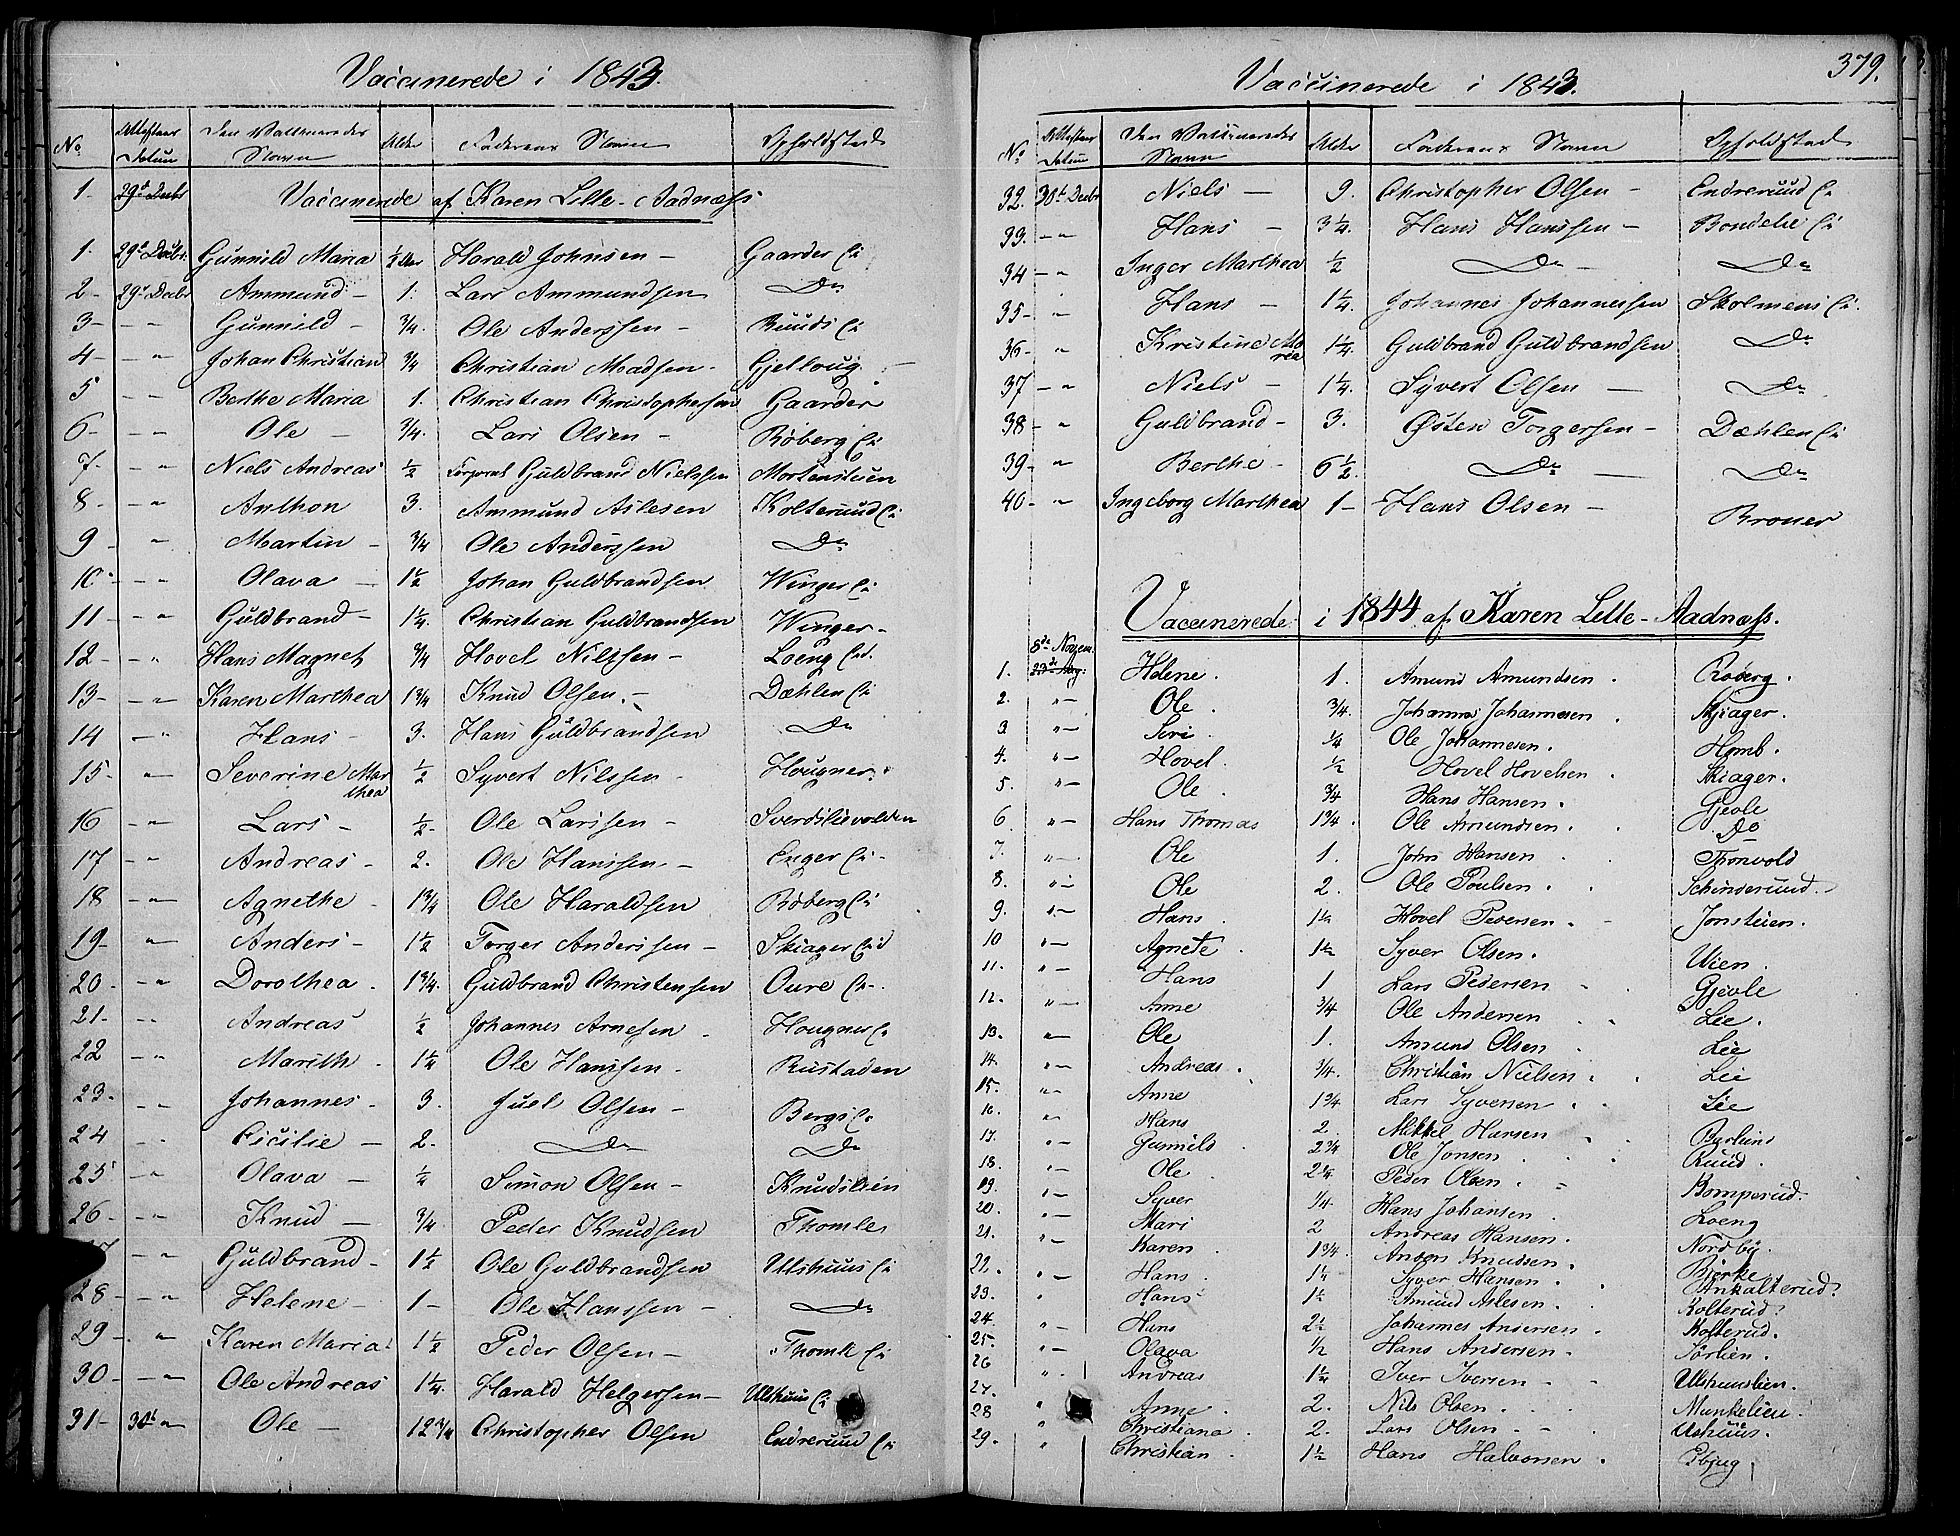 Vaccinerede i 1843.
No Attestens Datum Den Vaccineredes Navn Alder Faderens Navn Opholdsted
1. 29d Decbr Vaccinerede af Karen Lille-Aadnæss
1. 29d Decbr. Gunnild Maria 1/2 Aar Harald Johnsen - Gaarder Ei
2 - 29d Decbr Ammund - 1. Lars Ammundsen Do
3 - - " Gunnild - 3/4. Ole Anderssen - Ruuds Ei
4 - - " Johan Christian 3/4 Christian Madsen - Gjelloug -
5 - - Berthe Maria 1. Christian Christophersen Gaarder
6 - - " Ole - 3/4. Lars Olsen - Röberg Ei
7 - - " Niels Andreas 1/2 Corporal Guldbrand Nielssen Mortensteien
8 - - " Anthon 3. Ammund Aslesen Kolteruud Ei
9 - " Martin - 3/4 Ole Anderssen Do
10 - - " Olava - 1 1/2 Johan Guldbrandsen Winger Ei
11 - - " Guldbrand - 1 1/4. Christian Guldbrandsen Winger -
12 - - " Hans Magnet 3/4 Hovel Nilssen - Loeng Eid.
13 - - " Karen Marthea 1 3/4 Knud Olsen. - Dæhlen Ei
14 - " Hans - 3. Hans Guldbrandsen Do
15 - - " Severine Mar thea 1/2 Syvert Nilssen - Hougner.
16 - " Lars - 1/2 - Ole Larssen - Sverdslievolden
17 - - " Andreas - 2. Ole Hanssen - Enger Ei -
18 - " Agnethe - 1 3/4 Ole Haraldsen Röberg Ei
19 - " Anders - 1 1/2 Torger Anderssen - Skiager Eid
20 - - " Dorothea - 1 3/4. Guldbrand Christensen Oure Ei -
21 - - " Andreas 1/2 Johannes Arnesen - Hougner Ei
22 - " Marith - 1 1/4 Ole Hanssen - Rustaden
23 - - " Johannes - 3. Juel Olsen - Bergs Ei
24 - " Cicilie - 2. Do Do
25 - - " Olava - 1/4 Simon Olsen - Knudslien
26 - - " Knud - 3/4 Peder Knudsen Thomle
- " Guldbrand - 1 1/2 Ole Guldbrandsen Ulshuus Ei
28 - - " Helene - 1 - Ole Hanssen - Do
29 - . " Karen Maria 1 1/2 Peder Olsen - Thomle Ei
30 - - " Ole Andreas 1 1/4. Harald Helgersen - Ulshuus Ei
31 - 30d " Ole - 12 3/4 Christopher Olsen Endreruud Ei
379.
Vaccinerede i 1843.
No Attestens Datum Den Vaccineredes Navn Alder Faderens Navn Opholdsted
32. 30d Decbr Niels - 9. Christopher Olsen - Endreruud Ei
33. - " Hans - 3 1/4. Hans Hanssen - Bondelie Ei
34 - " Inger Marthea 1/2 Do - Do
35 - " Hans - 1 1/4. Johannes Johannessen Skolmens Ei.
36 - " Kristine Ma rea 1 1/4. Guldbrand Guldbrandsen Do
37 - " Niels - 1 1/4. Syvert Olsen - Do
38 - " Guldbrand - 3. Østen Torgersen - Dæhlen Ei
39 - " Berthe - 6 1/2. Do Do
40 - " Ingeborg Marthea 1 - Hans Olsen - Broner
Vaccinerede i 1844 af Karen Lille-Aadnæss.
8de Novem.
1. Helene. 1. Amund Amundsen. Röberg.
2. " - Ole. 3/4. Johannes Johannesen. Skiager.
3 " - Siri. 1/4 Ole Johannesen. Homb.
4. " - Hovel. 1/2 Hovel Hovelsen. Skiager.
5. " - Ole. 3/4 Hans Hansen. Gjevle
6. " - Hans Thomas 1 3/4. Ole Amundsen. Do
7. " - Ole 1. John Hansen Thonvold
8. " - Ole 2. Ole Poulsen. Schinderuud.
9. " - Hans. 1 1/4 Hovel Pedersen. - Jonsteien.
10 " - Agnete. 1 1/2 Syver Olsen. Wien.
11. " - Hans 1 Lars Pedersen - Gjevle
12. " - Anne 3/4 Ole Andersen Lie.
13. " - Ole 1. Amund Olsen Lie
14. " - Andreas. 3/4. Christian Nielsen Lie
15. " - Anne 1 3/4 Lars Syversen Lie
16. " Hans 2 Mikkel Hansen Byelund
17. " - Gunnild. 2 3/4 Ole Jonsen Ruud.
18. " - Ole. 2 1/4. Peder Olsen. Bomperud.
19. " - Syver 1/4. Hans Johansen Loeng
20. " - Mari 2 Andreas Hansen. Nordby.
21. " - Karen. 1 3/4. Anders Knudsen. Bjerke
22. " - Hans. 1 1/4 Syver Hansen. Ankalterud?
23. " - Hans 1 1/2 Amund Aslesen. Kolterud?
24. " - Hans 2 1/2 Johannes Andersen. Kolterud.
25. " - Olava 1/2 Hans Andersen. Sörlien.
26 " . Andreas 1 1/4 Iver Iversen - Ulshuuslien.
27. " Anne. 2. Nils Olsen. Munkelien.
28 " Christiana. 2. Lars Olsen. - Ulshuus.
29. " Christian. 1 1/2 Hans Halvorsen.